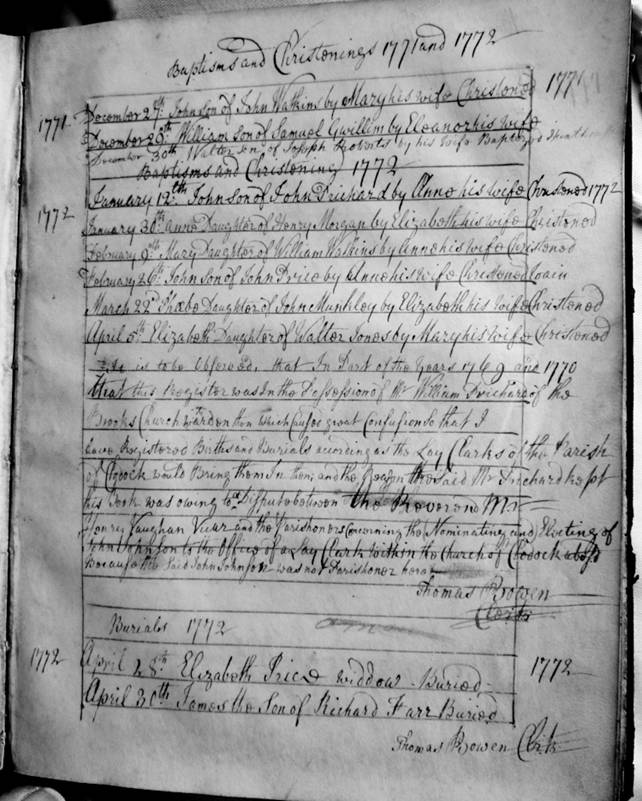 Baptisms and Christenings 1771 and 1772
1771 December 27th John son of John Watkins by Mary his wife Christened 1771
December 29th William Son of Samuel Gwillim by Eleanor his wife
December 30th Walter Son of Joseph Roberts by his wife Baptized
Baptisms and Christening 1772
January 12th John son of John Prichard by Anne his wife Christened 1772
1772 January 30th Anne Daughter of Henry Morgan by Elizabeth his wife Christened
February 9th Mary Daughter of William Watkins by Anne his wife Christened
February 26th John Son of John Price by Anne his wife Christened
March 22d Phœbe Daughter of John Munkley by Elizabeth his wife Christened
April 5th Elizabeth Daughter of Walter Jones by Mary his wife Christened
is to be Observed, that In Part of the Years 1769 and 1770
that this Register was In the Possession of Mr William Prichard of the
Brooks Church warden then which Causes great Confusion So that I
have Registered Births and Burials according as the Lay Clarks of the Parish
of Clodock would Bring them In then, and the Reason the said Mr Prichard kept
this Book was owing to a Dispute between the Reveren Mr
Henry Vaughan Vicar and the Parishoners Concerning the Nominating and Electing of
John Johnson to the Office of a Lay Clark within the Church of Clodock
Because the Said John Johnson was not Parishoner here
Thomas Bowen
Clerk
Burials 1772
1772 April 28th Elizabeth Price widdow Buried 1772
April 30th James the Son of Richard Farr Buried
Thomas Bowen Clerk